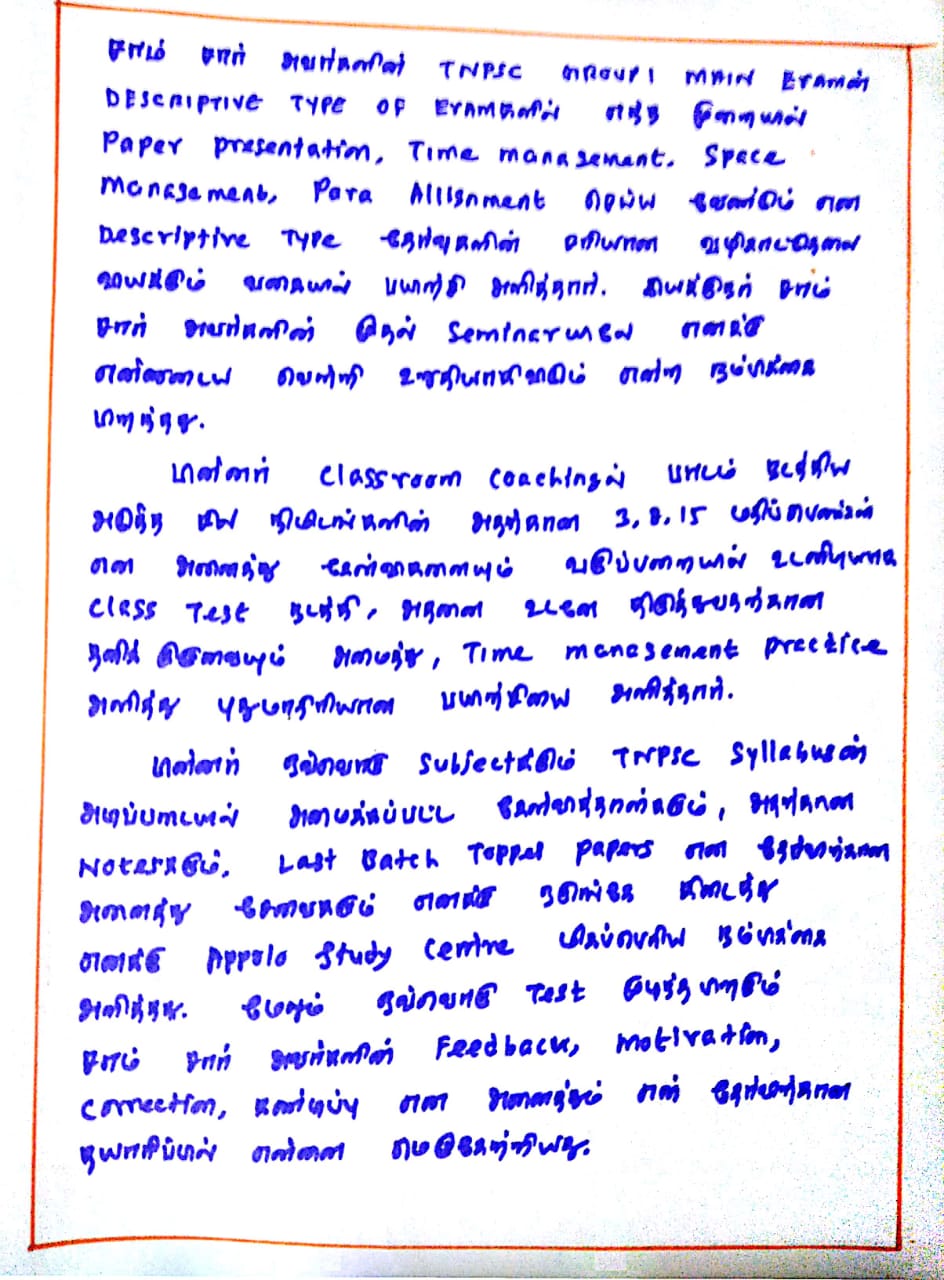 சாம் சார் அவர்களின் TNPSC GROUP I MAIN EXAMன்
DESCRIPTIVE TYPE OF EXAMகளில் எந்த முறையில்
Paper presentation, Time management, Space
Management, Para Allignment செய்ய வேண்டும் என
Descriptive Type தேர்வுகளின் சரியான வழிகாட்டுதலை
வகையில் பயிற்சி அளித்தார். சாம்
சார் அவர்களின் முதல் Seminarயிலே எனக்கு
என்னுடைய வெற்றி உறுதியாகிவிடும் என்ற நம்பிக்கை
பிறந்தது.
பின்னர் Classroom Coachingல் பாடம் நடத்திய
அடுத்த சில நிமிடங்களில் அதற்கான 3, 8, 15 மதிப்பெண்கள்
என அனைத்து கேள்விகளையும் வகுப்பறையில் உடனடியாக
Class Test நடத்தி, அதனை உடனே திருத்துவதற்கான
தனிக் குழுவையும் அமைத்து, Time management practice
அளித்து புதுமாதிரியான பயிற்சியை அளித்தார்.
பின்னர் ஒவ்வொரு Subjectக்கும் TNPSC Syllabusன்
அடிப்படையில் அமைக்கப்பட்ட கேள்வித்தாள்களும், அதற்கான
Notesகளும், Last Batch Topper papers என தேர்விற்கான
அனைத்து சேவைகளும் எனக்கு ஒருங்கே கிடைத்து
எனக்கு Appolo Study Centre மிகப்பெரிய நம்பிக்கை
அளித்தது. மேலும் ஒவ்வொரு Test முடிந்த பிறகும்
சாம் சார் அவர்களின் Feedback, motivation,
correction, கண்டிப்பு என அனைத்தும் என் தேர்விற்கான
தயாரிப்பில் என்னை மெருகேற்றியது.